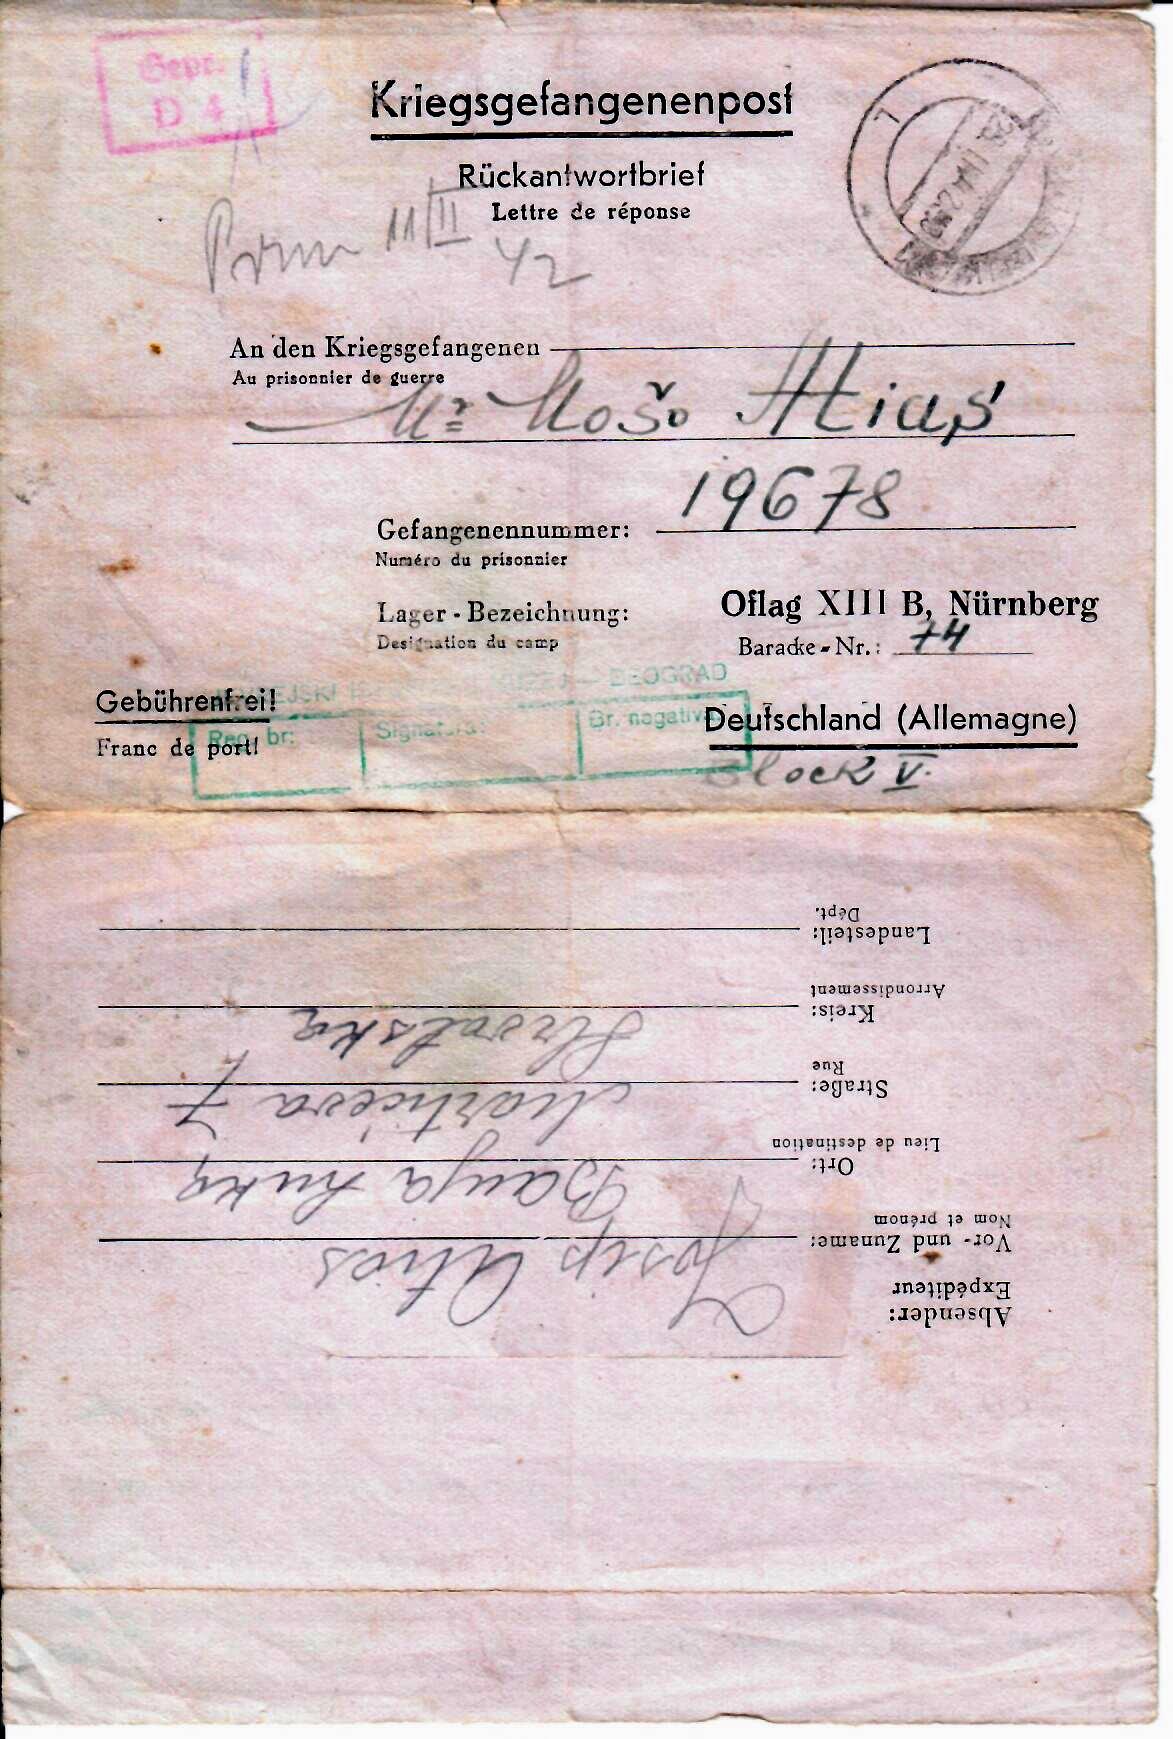 Gepr.
D 4
Kriegsgefangenenpost
Rückantwortbrief
Lettre de réponse
11/II
42
An den Kriegsgefangenen
Au prisonnier de guerre
Mr Mošo Atias
19678
Gefangenennummer:
Numéro du prisonnier
Lager-Bezeichnung:
Designation du camp
Oflag XIII B, Nürnberg
Baracke-Nr.: 74
BEOGRAD
Gebührenfrei!
Franc de port!
Reg. br:
Signatura:
Br. negativa
Deutschland (Allemagne)
Block V.
Absender:
Expéditeur
Vor- und Zuname: Josip Atias
Nom et prénom
Ort: Banja Luka
Lieu de destination
Straße: Martićeva 7
Rue
Kreis: Hrvatska
Arrondissement
Landesteil:
Dépt.